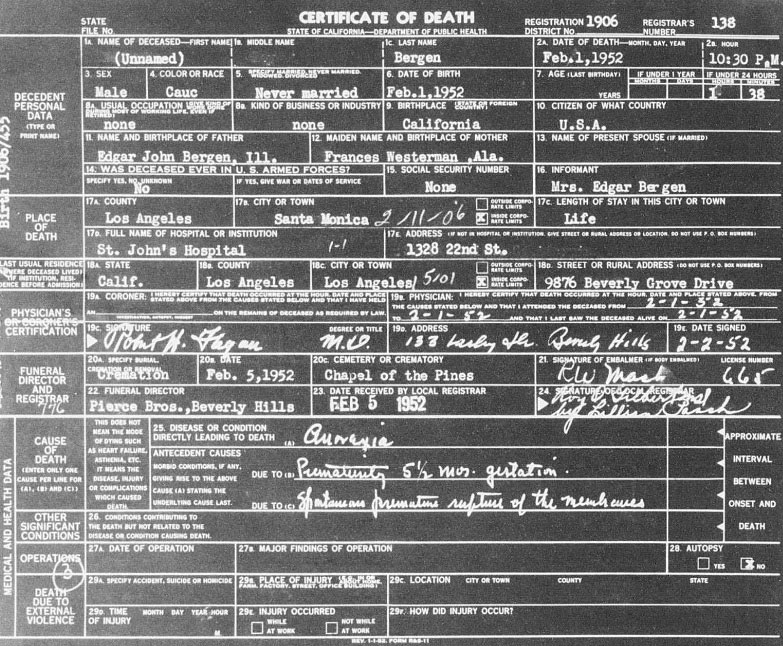 CERTIFICATE OF DEATH
STATE FILE No
STATE OF CALIFORNIA—DEPARTMENT OF PUBLIC HEALTH
REGISTRATION DISTRICT No. 1906
REGISTRAR'S NUMBER 138
Birth 1906/455
DECEDENT PERSONAL DATA (TYPE OR PRINT NAME)
1A. NAME OF DECEASED—FIRST NAME
(Unnamed)
1B. MIDDLE NAME
1C. LAST NAME
Bergen
2A. DATE OF DEATH—MONTH, DAY, YEAR
Feb.1,1952
2B. HOUR
10:30 P.M.
3. SEX
Male
4. COLOR OR RACE
Cauc
5. SPECIFY MARRIED, NEVER MARRIED, WIDOWED, DIVORCED
Never married
6. DATE OF BIRTH
Feb.1,1952
7. AGE (LAST BIRTHDAY)
YEARS
IF UNDER 1 YEAR
MONTHS DAYS
IF UNDER 24 HOURS
HOURS MINUTES
1 38
8A. USUAL OCCUPATION (GIVE KIND OF WORK DONE DURING MOST OF WORKING LIFE, EVEN IF RETIRED)
none
8B. KIND OF BUSINESS OR INDUSTRY
none
9. BIRTHPLACE (STATE OR FOREIGN COUNTRY)
California
10. CITIZEN OF WHAT COUNTRY
U.S.A.
11. NAME AND BIRTHPLACE OF FATHER
Edgar John Bergen, Ill.
12. MAIDEN NAME AND BIRTHPLACE OF MOTHER
Frances Westerman ,Ala.
13. NAME OF PRESENT SPOUSE (IF MARRIED)
14. WAS DECEASED EVER IN U. S. ARMED FORCES?
SPECIFY YES, NO, UNKNOWN
No
IF YES, GIVE WAR OR DATES OF SERVICE
15. SOCIAL SECURITY NUMBER
None
16. INFORMANT
Mrs. Edgar Bergen
PLACE OF DEATH
17A. COUNTY
Los Angeles
17B. CITY OR TOWN
Santa Monica 2/11/06
OUTSIDE CORPORATE LIMITS
X INSIDE CORPORATE LIMITS
17C. LENGTH OF STAY IN THIS CITY OR TOWN
Life
17D. FULL NAME OF HOSPITAL OR INSTITUTION
St. John's Hospital 1-1
17E. ADDRESS (IF NOT IN HOSPITAL OR INSTITUTION, GIVE STREET OR RURAL ADDRESS OR LOCATION. DO NOT USE P. O. BOX NUMBERS)
1328 22nd St.
LAST USUAL RESIDENCE (WHERE DECEASED LIVED) (IF INSTITUTION, RESIDENCE BEFORE ADMISSION)
18A. STATE
Calif.
18B. COUNTY
Los Angeles
18C. CITY OR TOWN
Los Angeles/ 5/01
OUTSIDE CORPORATE LIMITS
X INSIDE CORPORATE LIMITS
18D. STREET OR RURAL ADDRESS (DO NOT USE P. O. BOX NUMBERS)
9876 Beverly Grove Drive
PHYSICIAN'S OR CORONER'S CERTIFICATION
19A. CORONER: I HEREBY CERTIFY THAT DEATH OCCURRED AT THE HOUR, DATE AND PLACE STATED ABOVE FROM THE CAUSES STATED BELOW AND THAT I HAVE HELD
AN ON THE REMAINS OF DECEASED AS REQUIRED BY LAW.
19B. PHYSICIAN: I HEREBY CERTIFY THAT DEATH OCCURRED AT THE HOUR, DATE AND PLACE STATED ABOVE, FROM THE CAUSES STATED BELOW AND THAT I ATTENDED THE DECEASED FROM 2-1-52
TO 2-1-52 AND THAT I LAST SAW THE DECEASED ALIVE ON 2-1-52
19C. SIGNATURE
Robert H. Fagan
DEGREE OR TITLE
M.D.
19D. ADDRESS
133 Lasky Dr. Beverly Hills
19E. DATE SIGNED
2-2-52
FUNERAL DIRECTOR AND REGISTRAR
776
20A. SPECIFY BURIAL, CREMATION OR REMOVAL
Cremation
20B. DATE
Feb. 5,1952
20C. CEMETERY OR CREMATORY
Chapel of the Pines
21. SIGNATURE OF EMBALMER (IF BODY EMBALMED) LICENSE NUMBER
665
22. FUNERAL DIRECTOR
Pierce Bros.,Beverly Hills
23. DATE RECEIVED BY LOCAL REGISTRAR
FEB 5 1952
24. SIGNATURE OF LOCAL REGISTRAR
MEDICAL AND HEALTH DATA
CAUSE OF DEATH (ENTER ONLY ONE CAUSE PER LINE FOR (A), (B) AND (C))
THIS DOES NOT MEAN THE MODE OF DYING SUCH AS HEART FAILURE, ASTHENIA, ETC. IT MEANS THE DISEASE, INJURY OR COMPLICATIONS WHICH CAUSED DEATH.
25. DISEASE OR CONDITION DIRECTLY LEADING TO DEATH (A) Anoxia
ANTECEDENT CAUSES
MORBID CONDITIONS, IF ANY, GIVING RISE TO THE ABOVE CAUSE (A) STATING THE UNDERLYING CAUSE LAST.
DUE TO (B) Prematurity 5½ mos. gestation.
DUE TO (C) Spontaneous premature rupture of the membranes
APPROXIMATE INTERVAL BETWEEN ONSET AND DEATH
OTHER SIGNIFICANT CONDITIONS
26. CONDITIONS CONTRIBUTING TO THE DEATH BUT NOT RELATED TO THE DISEASE OR CONDITION CAUSING DEATH.
OPERATIONS
3
27A. DATE OF OPERATION
27B. MAJOR FINDINGS OF OPERATION
28. AUTOPSY
YES X NO
DEATH DUE TO EXTERNAL VIOLENCE
29A. SPECIFY ACCIDENT, SUICIDE OR HOMICIDE
29B. PLACE OF INJURY (E.G. IN OR ABOUT HOME, FARM, FACTORY, STREET, OFFICE BUILDING)
29C. LOCATION CITY OR TOWN COUNTY STATE
29D. TIME OF INJURY MONTH DAY YEAR HOUR
M.
29E. INJURY OCCURRED
WHILE AT WORK
NOT WHILE AT WORK
29F. HOW DID INJURY OCCUR?
REV. 1-1-52 FORM R&S-11